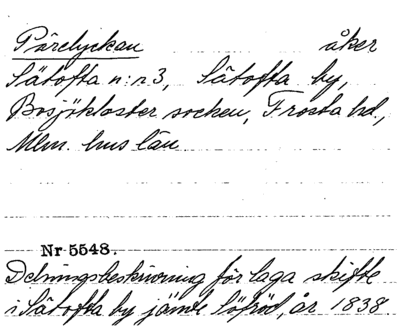 Pärelyckan åker
Sätofta n:r 3, Sätofta by,
Bosjökloster socken, Frosta hd.,
Mlm. hus län
Nr 5548.
Delningsbeskrivning för laga skifte
i Sätofta by jämte Söfröd, år 1838